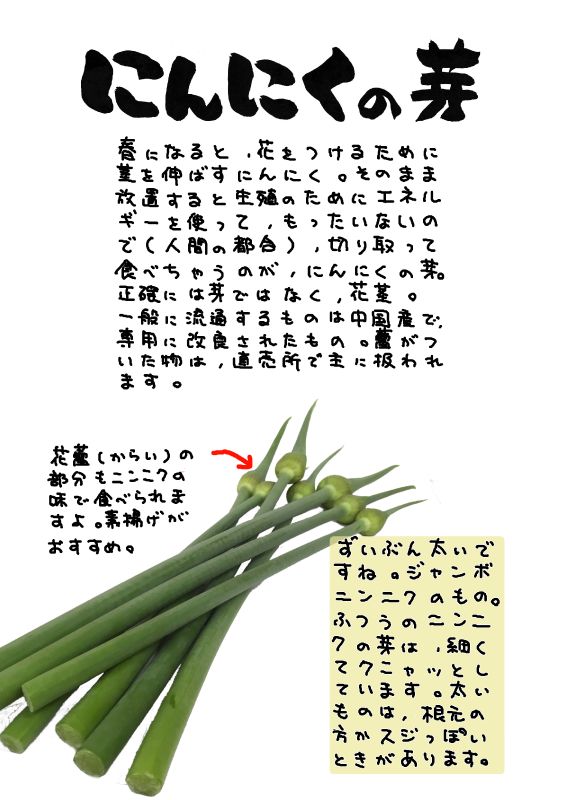 にんにくの芽
春になると、花をつけるために
茎を伸ばすにんにく。そのまま
放置すると生殖のためにエネル
ギーを使って、もったいないの
で(人間の都合)、切り取って
食べちゃうのが、にんにくの芽。
正確には芽ではなく、花茎。
一般に流通するものは中国産で、
専用に改良されたもの。蕾がつ
いた物は、直売所で主に扱われ
ます。
花蕾(からい)の
部分もニンニクの
味で食べられま
すよ。素揚げが
おすすめ。
ずいぶん太いで
すね。ジャンボ
ニンニクのもの。
ふつうのニンニ
クの芽は、細く
てクニャッとし
ています。太い
ものは、根元の
方がスジっぽい
ときがあります。